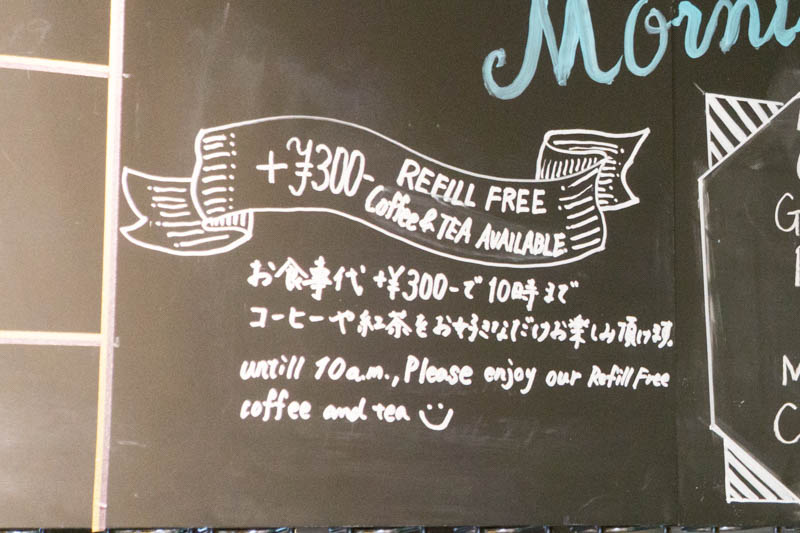 Morni
+¥300- REFILL FREE
Coffee & TEA AVAILABLE
お食事代 +¥300-で10時まで
コーヒーや紅茶をお好きなだけお楽しみ頂けます。
untill 10a.m., Please enjoy our Refill Free
coffee and tea
G
M
C